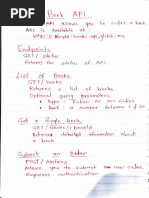 Book API
API allows you to order a book
API is available at
Endpoints
GET / status
Returns the status of API.
List of Books
GET / books
Returns a list of books
Optional query parameters
type : fiction or non-fiction
Get a single book
GET / books / :bookId
Retrieve detailed information about
a book
Submit an Order
POST / orders
Allows you to submit a new order.
Requires authentication